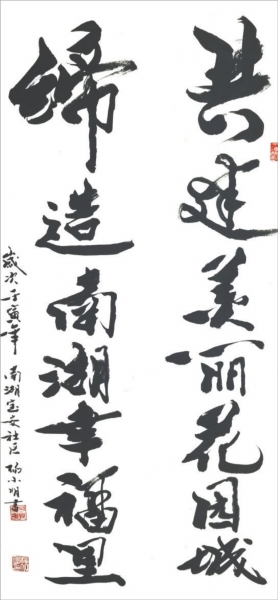 共建美丽花园城
缔造南湖幸福里
岁次壬寅年 南湖宝安社区 杨小明书